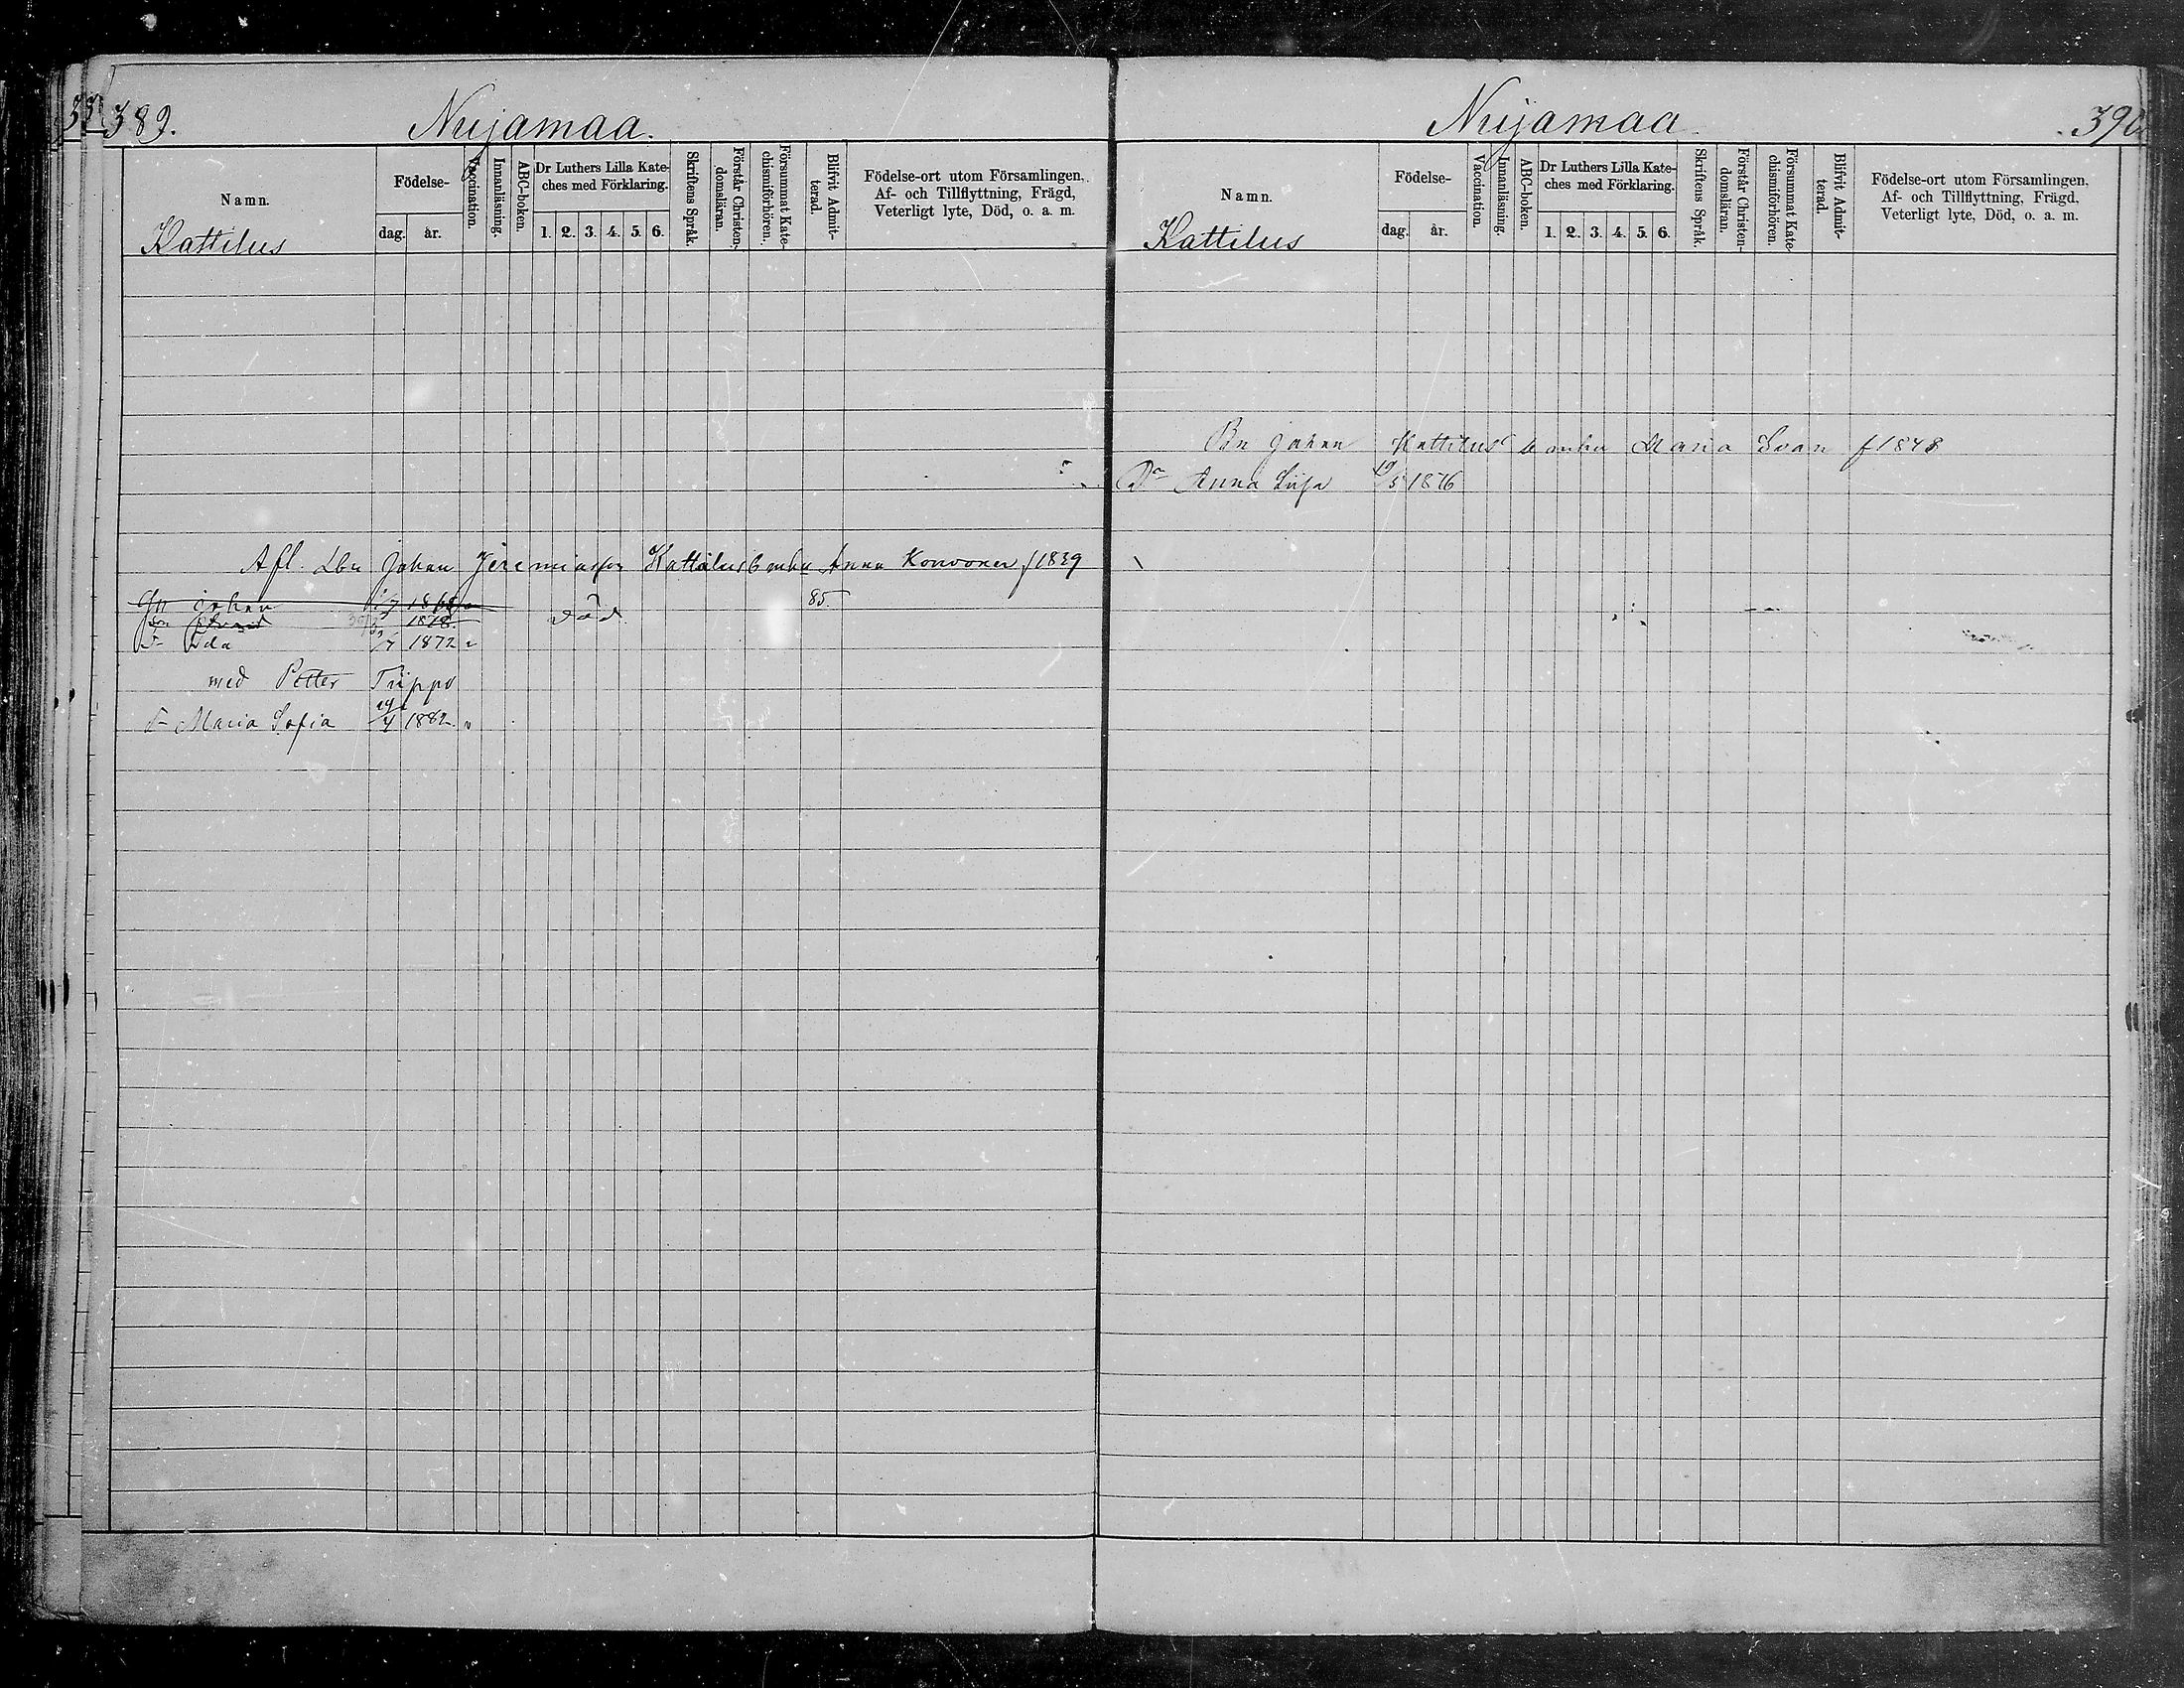 389.
Nuijamaa.
Namn.
Kattilus
Födelse-
dag.
år.
Vaccination.
Innanläsning.
ABC-boken.
Dr Luthers Lilla Kate-
ches med Förklaring.
1. 2. 3. 4. 5. 6.
Skriftens Språk.
Förstår Christen-
domsläran.
Försummat Kate-
chismiförhören.
Blifvit Admit-
terad.
Födelse-ort utom Församlingen,
Af- och Tillflyttning, Frägd,
Veterligt lyte, Död, o. a. m.
Afl. Lbn Johan Jeremiasson Kattilus enka Anna Konvonen f 1839
Johan 1868 85.
1878. död
Ida 1872
med Petter Trippo
Maria Sofia 1882
Nuijamaa
390
Namn.
Kattilus
Födelse-
dag.
år.
Vaccination.
Innanläsning.
ABC-boken.
Dr Luthers Lilla Kate-
ches med Förklaring.
1. 2. 3. 4. 5. 6.
Skriftens Språk.
Förstår Christen-
domsläran.
Försummat Kate-
chismiförhören.
Blifvit Admit-
terad.
Födelse-ort utom Församlingen,
Af- och Tillflyttning, Frägd,
Veterligt lyte, Död, o. a. m.
Bn Johan Kattilus enka Maria Svan f 1848
Dr Anna 19/5 1876